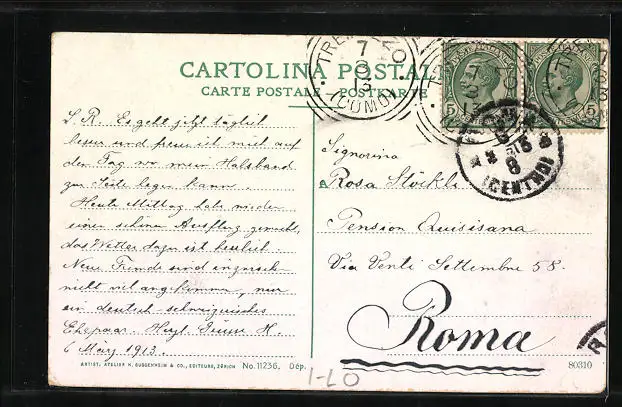 CARTOLINA POSTALE
CARTE POSTALE POSTKARTE
TREMEZZO
(COMO)
7
3
13
5
5
(CENTRO)
L. R. Es geht jetzt täglich
besser und freue ich mich auf
den Tag wo mein Halsband
zur Seite legen kann.
Heute Mittag habe wieder
einen schönen Ausflug gemacht,
das Wetter dazu ist herrlich.
Neue Freunde sind inzwisch
nicht viel angekommen, nur
ein deutsch schweizerisches
Ehepaar. Hzgl. H.
6 März 1913.
Signorina
Rosa Stöckli
Pension Quisisana
Via Venti Settembre 58.
Roma
ARTIST. ATELIER H. GUGGENHEIM & CO., EDITEURS, ZÜRICH No. 11236. Dép.
80310
1-LO